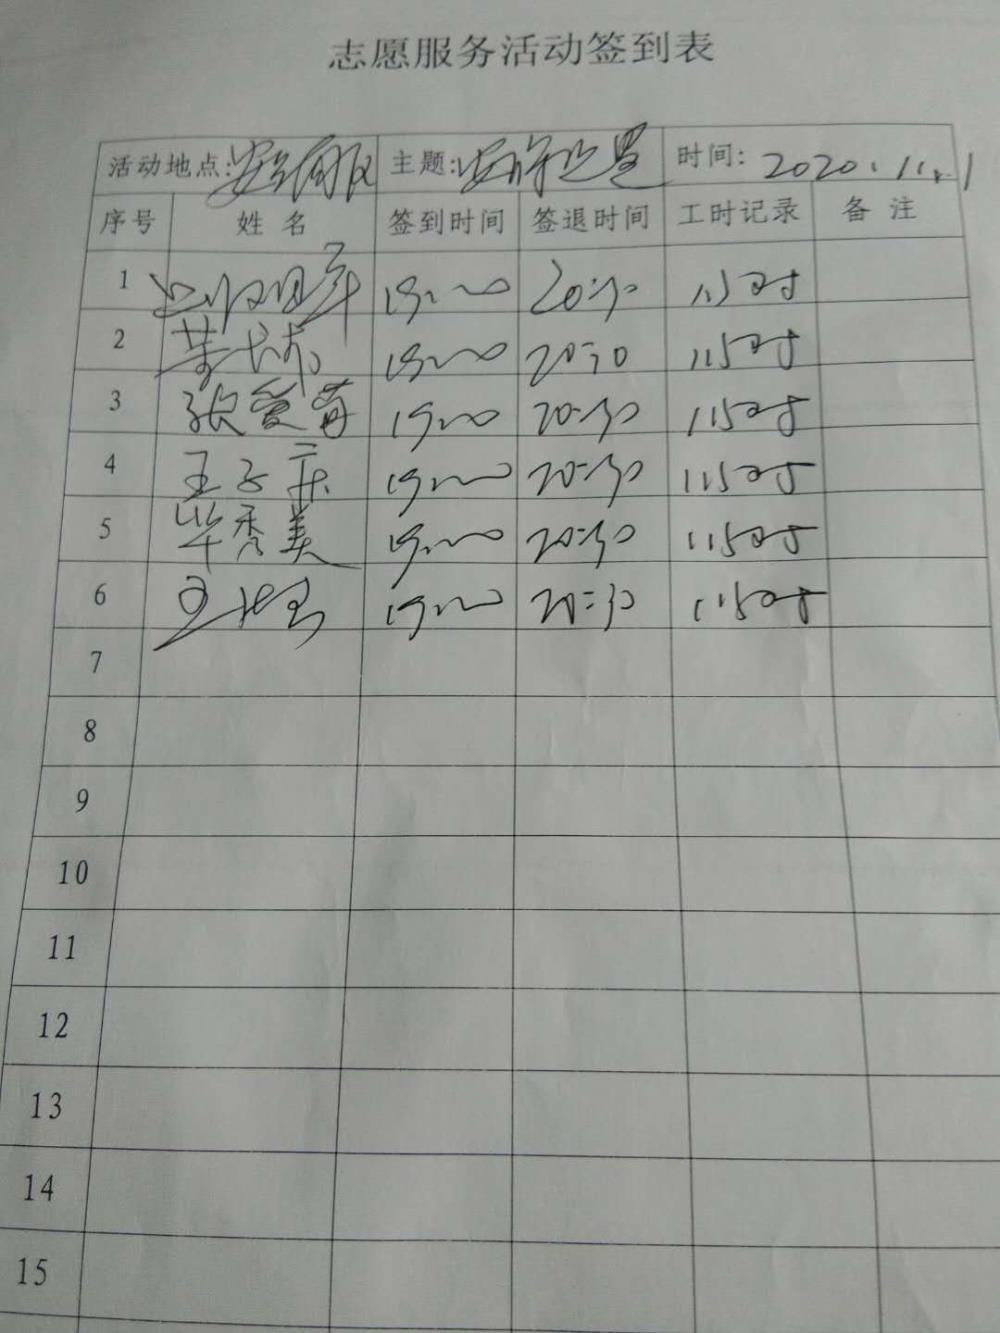 志愿服务活动签到表
活动地点: 主题: 时间: 2020.11.1
序号 姓名 签到时间 签退时间 工时记录 备注
1 19:00 20:30 1.5时
2 19:00 20:30 1.5时
3 张爱莓 19:00 20:30 1.5时
4 王子庆 19:00 20:30 1.5时
5 毕秀美 19:00 20:30 1.5时
6 19:00 20:30 1.5时
7
8
9
10
11
12
13
14
15